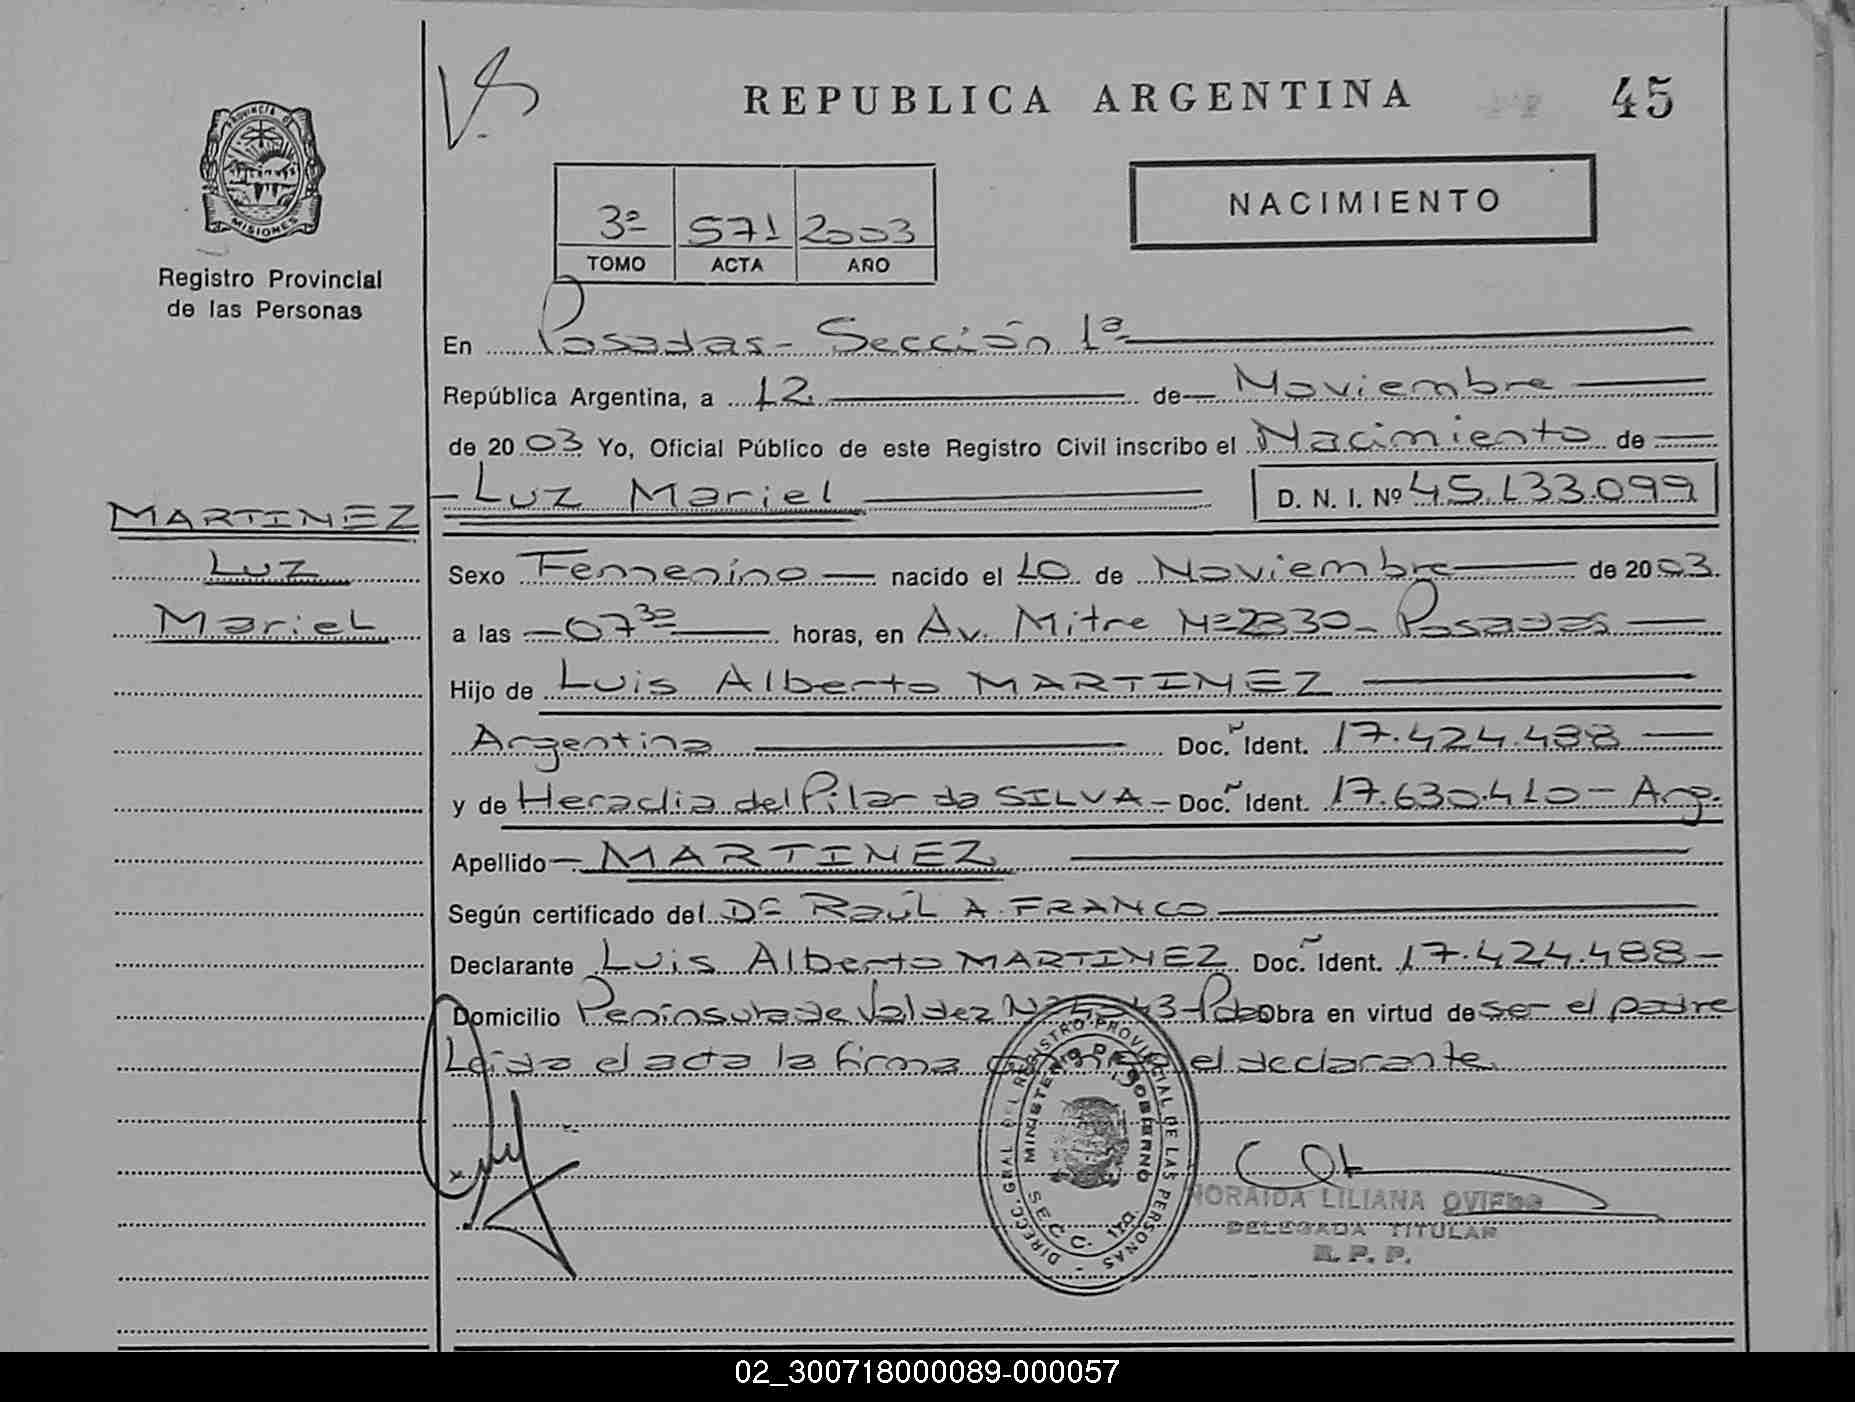 REPUBLICA ARGENTINA
45
PROVINCIA DE
MISIONES
Registro Provincial
de las Personas
3º 571 2003
TOMO ACTA AÑO
NACIMIENTO
En Posadas - Sección 1ª
República Argentina, a 12 de Noviembre
de 2003 Yo, Oficial Público de este Registro Civil inscribo el Nacimiento de
Luz Mariel D. N. I. Nº 45.133.099
MARTINEZ
Luz
Mariel
Sexo Femenino nacido el 10 de Noviembre de 2003.
a las 07³⁰ horas, en Av. Mitre Nº 2330 - Posadas
Hijo de Luis Alberto MARTINEZ
Argentina Doc. Ident. 17.424.488
y de Heraclia del Pilar da SILVA - Doc. Ident. 17.630.410 - Arg.
Apellido MARTINEZ
Según certificado del Dr. Raúl A. FRANCO
Declarante Luis Alberto MARTINEZ Doc. Ident. 17.424.488 -
Domicilio Peninsula de Valdez Obra en virtud de ser el padre
Leida el acta la firma el declarante.
DIRECC. GRAL DEL REGISTRO PROVINCIAL DE LAS PERSONAS
MINISTERIO DE GOBIERNO
SECC. 1RA
NORAIDA LILIANA OVIEDO
DELEGADA TITULAR
R. P. P.
02_300718000089-000057